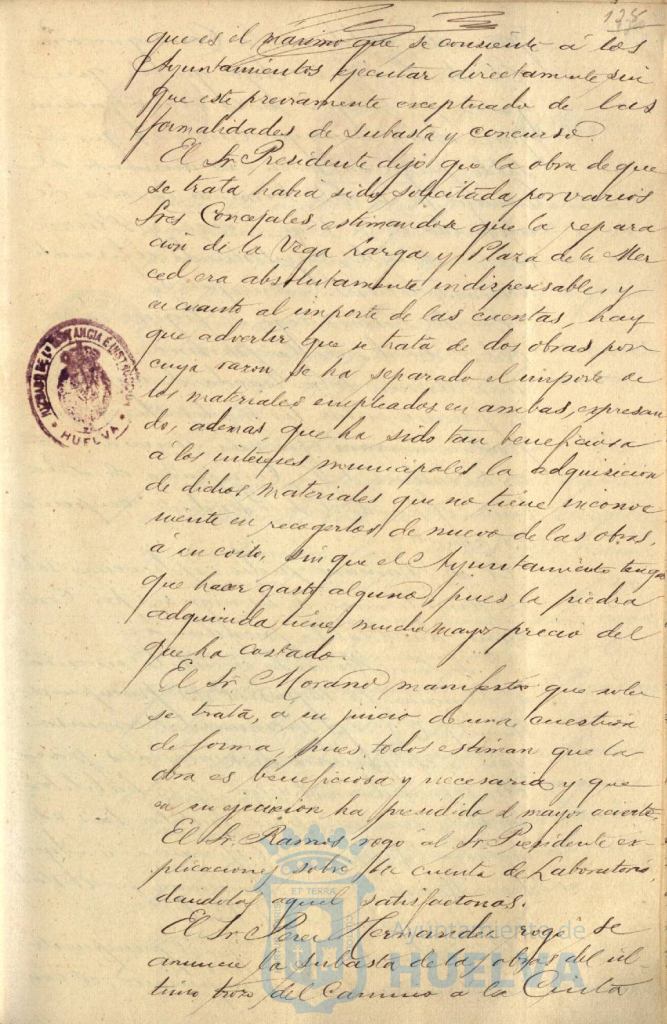 125
que es el maximo que se consiente á los
Ayuntamientos ejecutar directamente sin
que esté previamente exceptuado de las
formalidades de subasta y concurso.
El Sr. Presidente dijo que la obra de que
se trata habia sido solicitada por varios
Sres Concejales, estimandose que la repara
ción de la Vega Larga y Plaza de la Mer
ced, era absolutamente indispensable, y
en cuanto al importe de las cuentas, hay
que advertir que se trata de dos obras por
cuya razon se ha separado el importe de
los materiales empleados en ambas, expresan
do, además, que ha sido tan beneficiosa
á los intereses municipales la adquisicion
de dichos materiales que no tiene inconve
niente en recogerlos de nuevo de las obras,
á su costa, sin que el Ayuntamiento tenga
que hacer gasto alguno, pues la piedra
adquirida tiene mucho mayor precio del
que ha costado.
El Sr. Morano manifestó que solo
se trata, a su juicio de una cuestion
de forma, pues todos estiman que la
obra es beneficiosa y necesaria y que
en su ejecucion ha presidido el mayor acierto.
El Sr. Ramos rogó al Sr. Presidente ex
plicaciones sobre la cuenta de Laboratorio,
dandolas aquel satisfactorias.
El Sr. Perez Hernandez rogó se
anuncie la subasta de las obras del ul-
timo trozo del Camino a la Cinta
HUELVA
ET TERRA
Ayuntamiento de
HUELVA